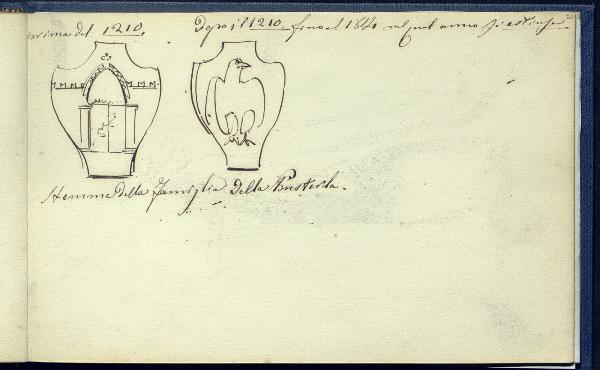 prima del 1210.
Dopo il 1210 fino al 1841 nel qual anno si estinse.
Stemma della Famiglia Della Pusterla.